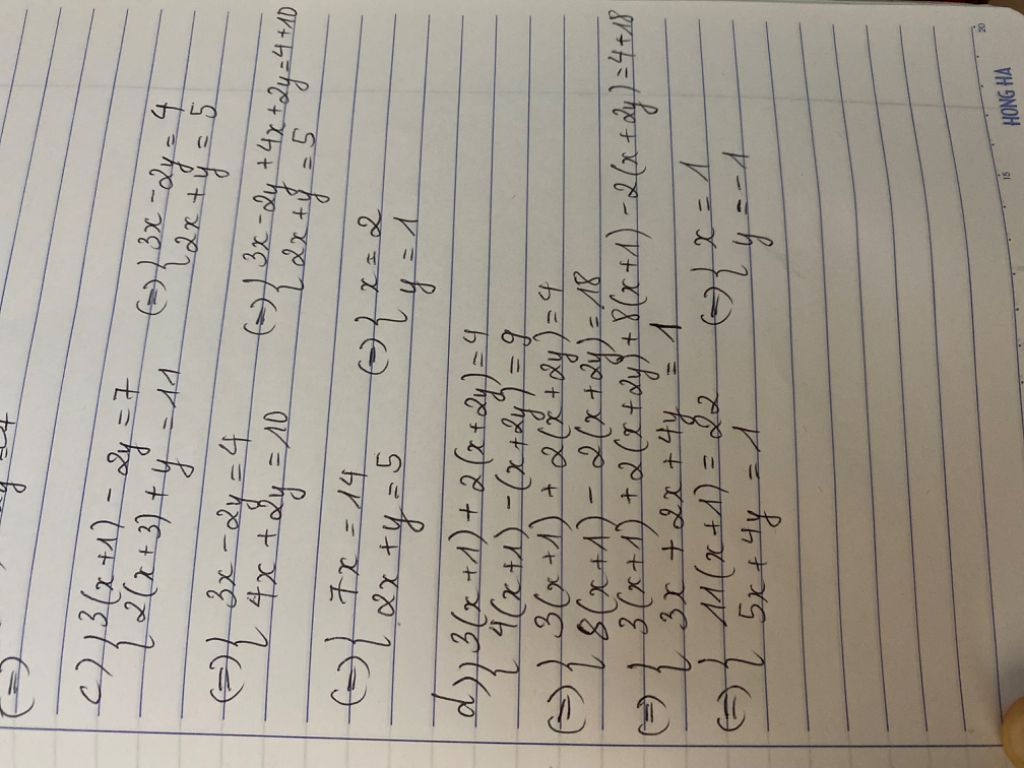 (=)
c) { 3(x+1) - 2y = 7
{ 2(x+3) + y = 11
(=) { 3x - 2y = 4
{ 2x + y = 5
(=) { 3x - 2y = 4
{ 4x + 2y = 10
(=) { 3x - 2y + 4x + 2y = 4+10
{ 2x + y = 5
(=) { 7x = 14
{ 2x + y = 5
(=) { x = 2
{ y = 1
d) { 3(x+1) + 2(x+2y) = 4
{ 4(x+1) - (x+2y) = 9
(=) { 3(x+1) + 2(x+2y) = 4
{ 8(x+1) - 2(x+2y) = 18
(=) { 3(x+1) + 2(x+2y) + 8(x+1) - 2(x+2y) = 4+18
{ 3x + 2x + 4y = 1
(=) { 11(x+1) = 22
{ 5x + 4y = 1
(=) { x = 1
{ y = -1
15
20
HONG HA